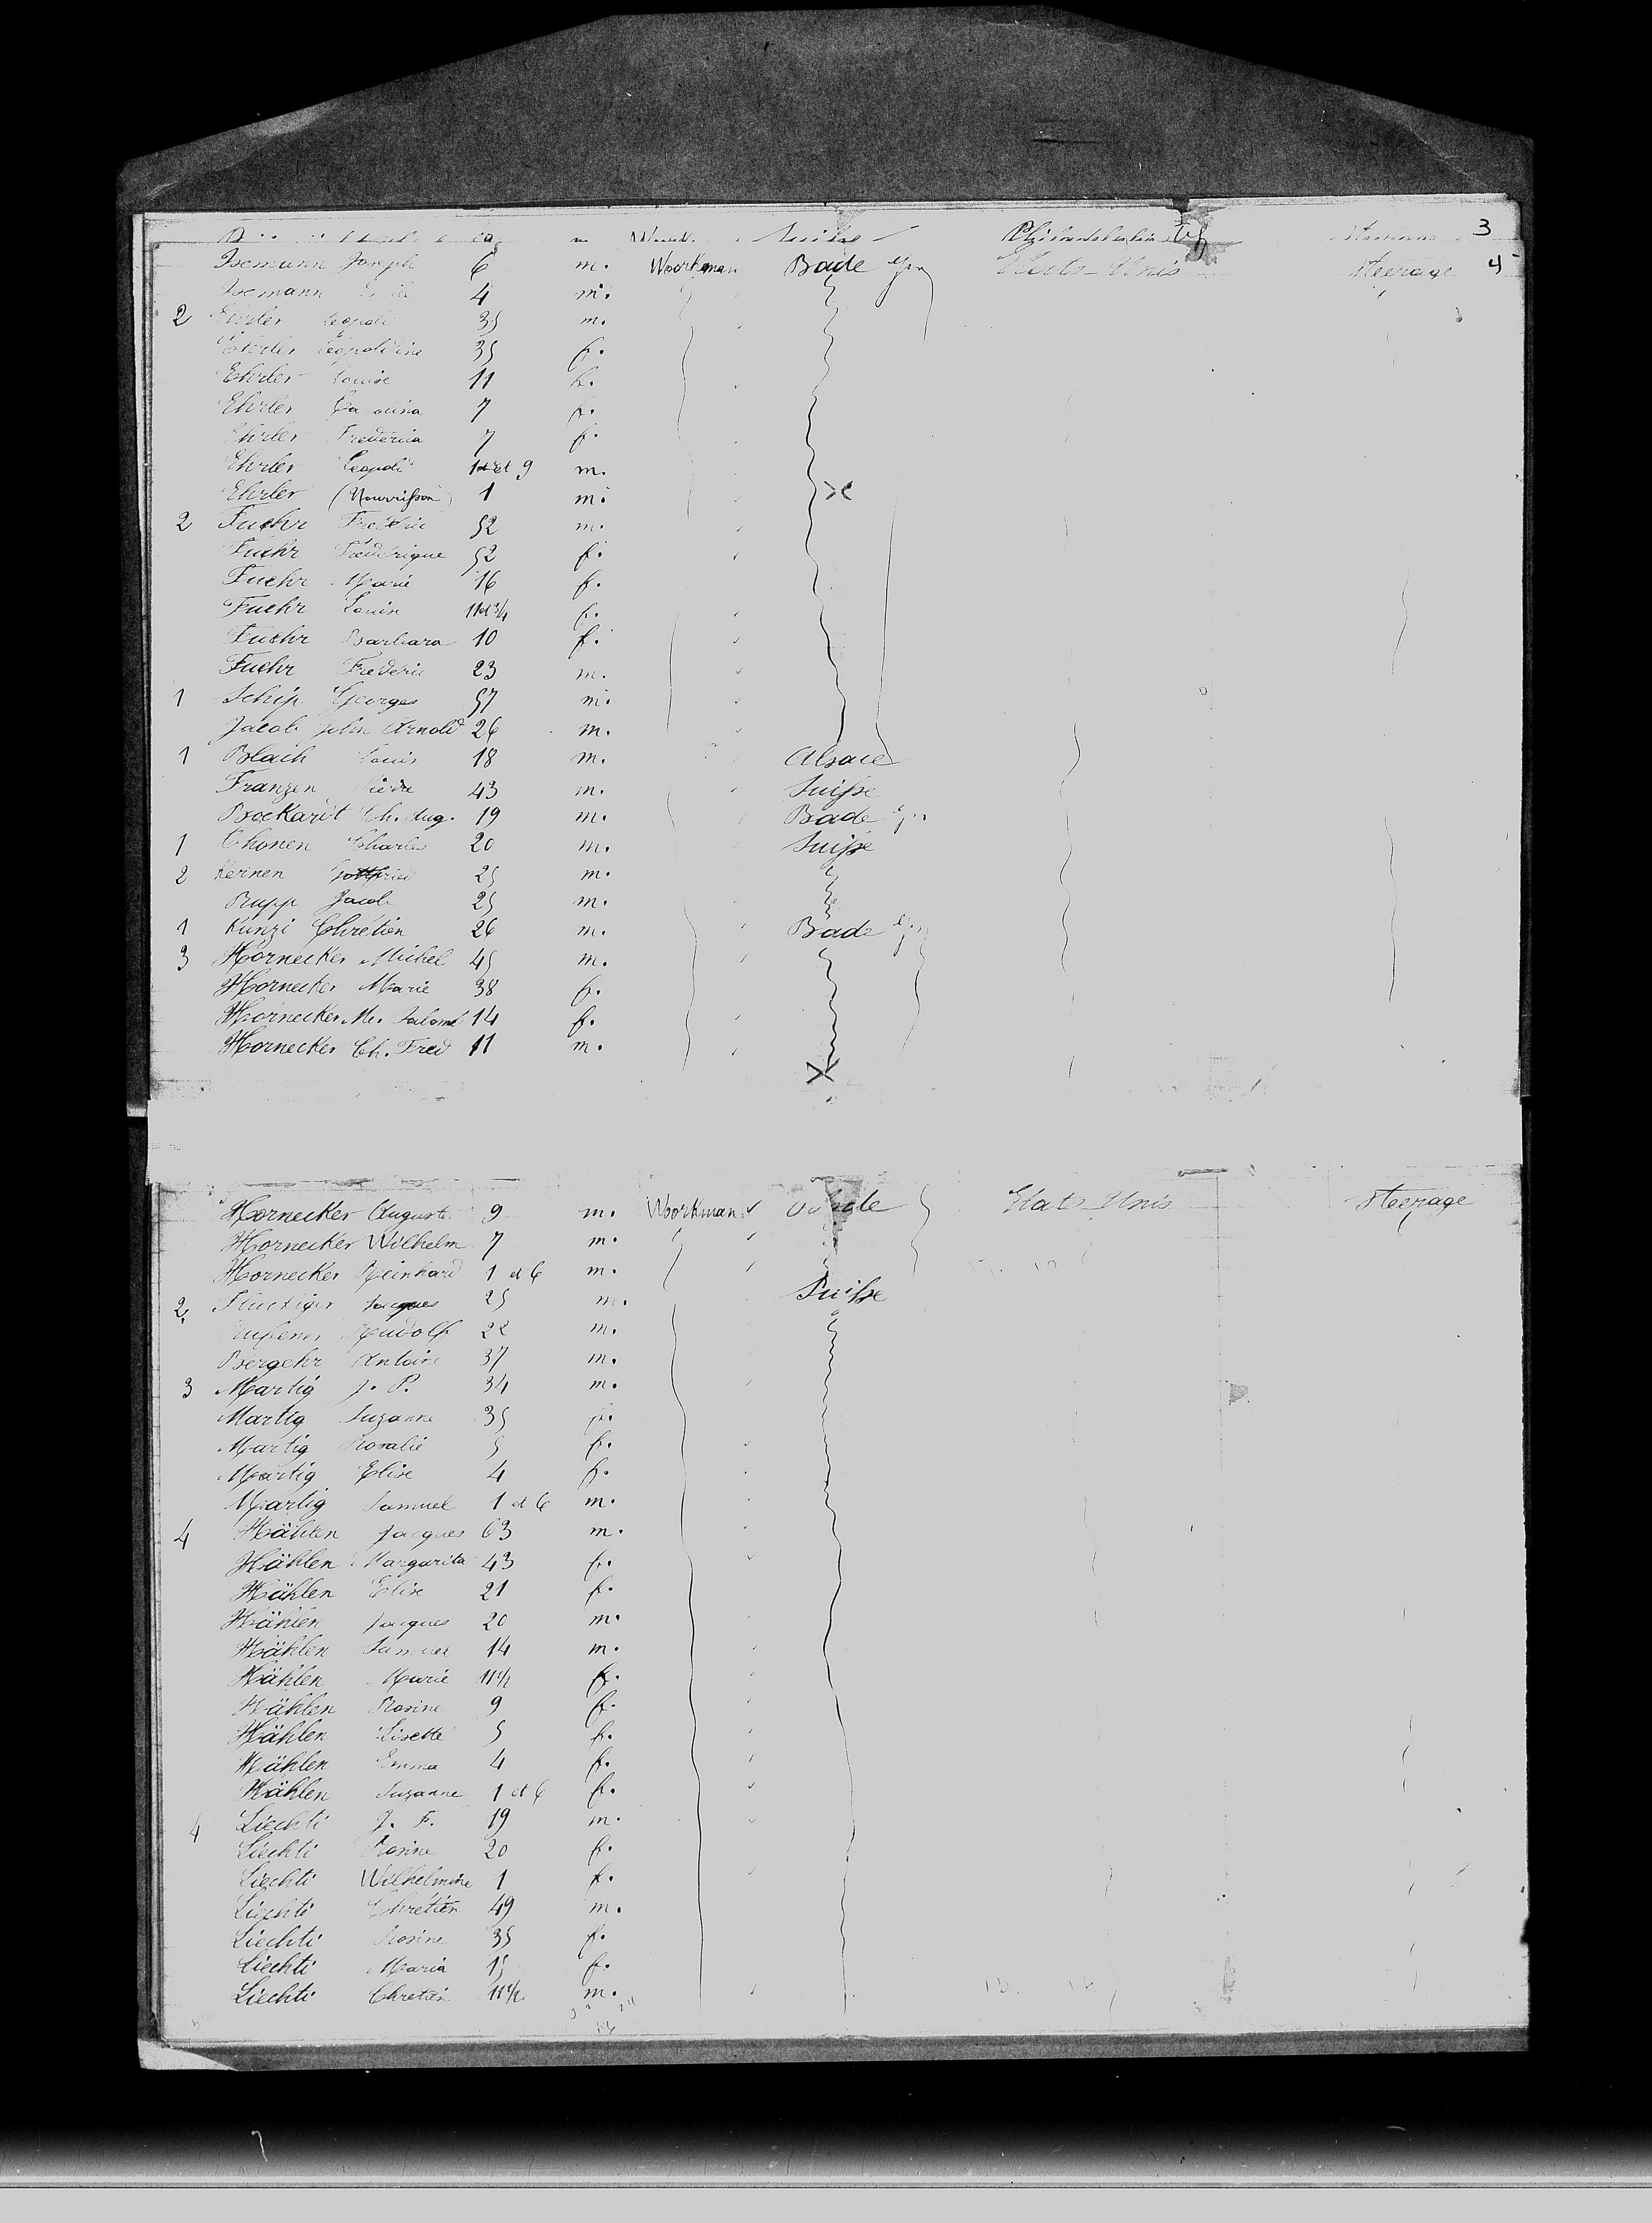 3
Isemann Joseph 6 m. Woorkman Bade Etats-Unis Steerage 4
Isemann 4 m.
2 Ehrler Leopold 35 m.
Ehrler Leopoldine 35 f.
Ehrler Louise 11 f.
Ehrler Carolina 7 f.
Ehrler Frederica 7 f.
Ehrler Leopold 1 et 9 m.
Ehrler (Nourrisson) 1 m.
2 Fuehr Frédéric 52 m.
Fuehr Frédérique 52 f.
Fuehr Marie 16 f.
Fuehr Louise 11 et 3/4 f.
Fuehr Barbara 10 f.
Fuehr Frederic 23 m.
1 Schip Georges 57 m.
Jacob John Arnold 26 m.
1 Blaich Louis 18 m. Alsace
Franzen Pierre 43 m. Suisse
Bockardt Ch. Aug. 19 m. Bade
1 Chonen Charles 20 m. Suisse
2 Kernen Gottfried 25 m.
Rupp Jacob 25 m.
1 Kunzi Chretien 26 m. Bade
3 Hornecker Michel 45 m.
Hornecker Marie 38 f.
Hornecker M. Salomé 14 f.
Hornecker Ch. Fred 11 m.
Hornecker Auguste 9 m. Woorkman Bade Etats-Unis Steerage
Hornecker Wilhelm 7 m.
Hornecker Reinhard 1 et 6 m.
2 Fluckiger Jacques 25 m. Suisse
Rudolf 22 m.
Bergehr Antoine 37 m.
3 Martig J. P. 34 m.
Martig Suzanne 35 f.
Martig Rosalie 5 f.
Martig Elise 4 f.
Martig Samuel 1 et 6 m.
4 Hählen Jacques 63 m.
Hählen Margarita 43 f.
Hählen Elise 21 f.
Hählen Jacques 20 m.
Hählen Samuel 14 m.
Hählen Marie 11 1/2 f.
Hählen Rosine 9 f.
Hählen Lisette 5 f.
Hählen Emma 4 f.
Hählen Suzanne 1 et 6 f.
4 Liechti J. F. 19 m.
Liechti Rosine 20 f.
Liechti Wilhelmine 1 f.
Liechti Chrétien 49 m.
Liechti Rosine 35 f.
Liechti Maria 15 f.
Liechti Chretien 11 1/2 m.